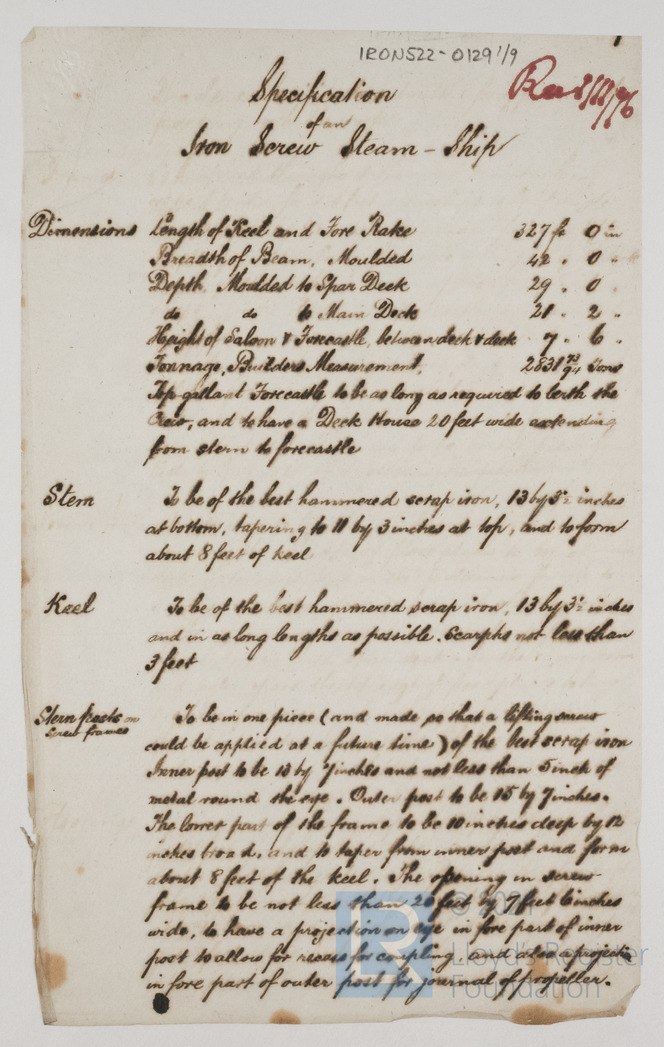 IRON522-0129 1/9
Specification
of an
Iron Screw Steam-Ship
Dimensions Length of Keel and Fore Rake 327 ft 0 in
Breadth of Beam, Moulded 42 " 0 "
Depth Moulded to Spar Deck 29 " 0 "
do do to Main Deck 21 " 2 "
Height of Saloon & Forecastle, between deck & deck 7 " 6 "
Tonnage, Builders Measurement, 2831 73/94 Tons
Top-gallant Forecastle to be as long as required to berth the
Crew, and to have a Deck House 20 feet wide extending
from stern to forecastle
Stem To be of the best hammered scrap iron, 13 by 3½ inches
at bottom, tapering to 11 by 3 inches at top, and to form
about 8 feet of keel
Keel To be of the best hammered scrap iron, 13 by 3½ inches
and in as long lengths as possible. Scarphs not less than
3 feet
Stern posts or To be in one piece (and made so that a lifting screw
Screw frames could be applied at a future time) of the best scrap iron
Inner post to be 13 by 7 inches and not less than 5 inch of
metal round the eye. Outer post to be 15 by 7 inches.
The lower part of the frame to be 10 inches deep by 12
inches broad, and to taper from inner post and form
about 8 feet of the keel. The opening in screw
frame to be not less than 20 feet by 7 feet 6 inches
wide, to have a projection or eye in fore part of inner
post to allow for recess for coupling, and also a projection
in fore part of outer post for journal of propeller.
Lloyd's Register
Foundation